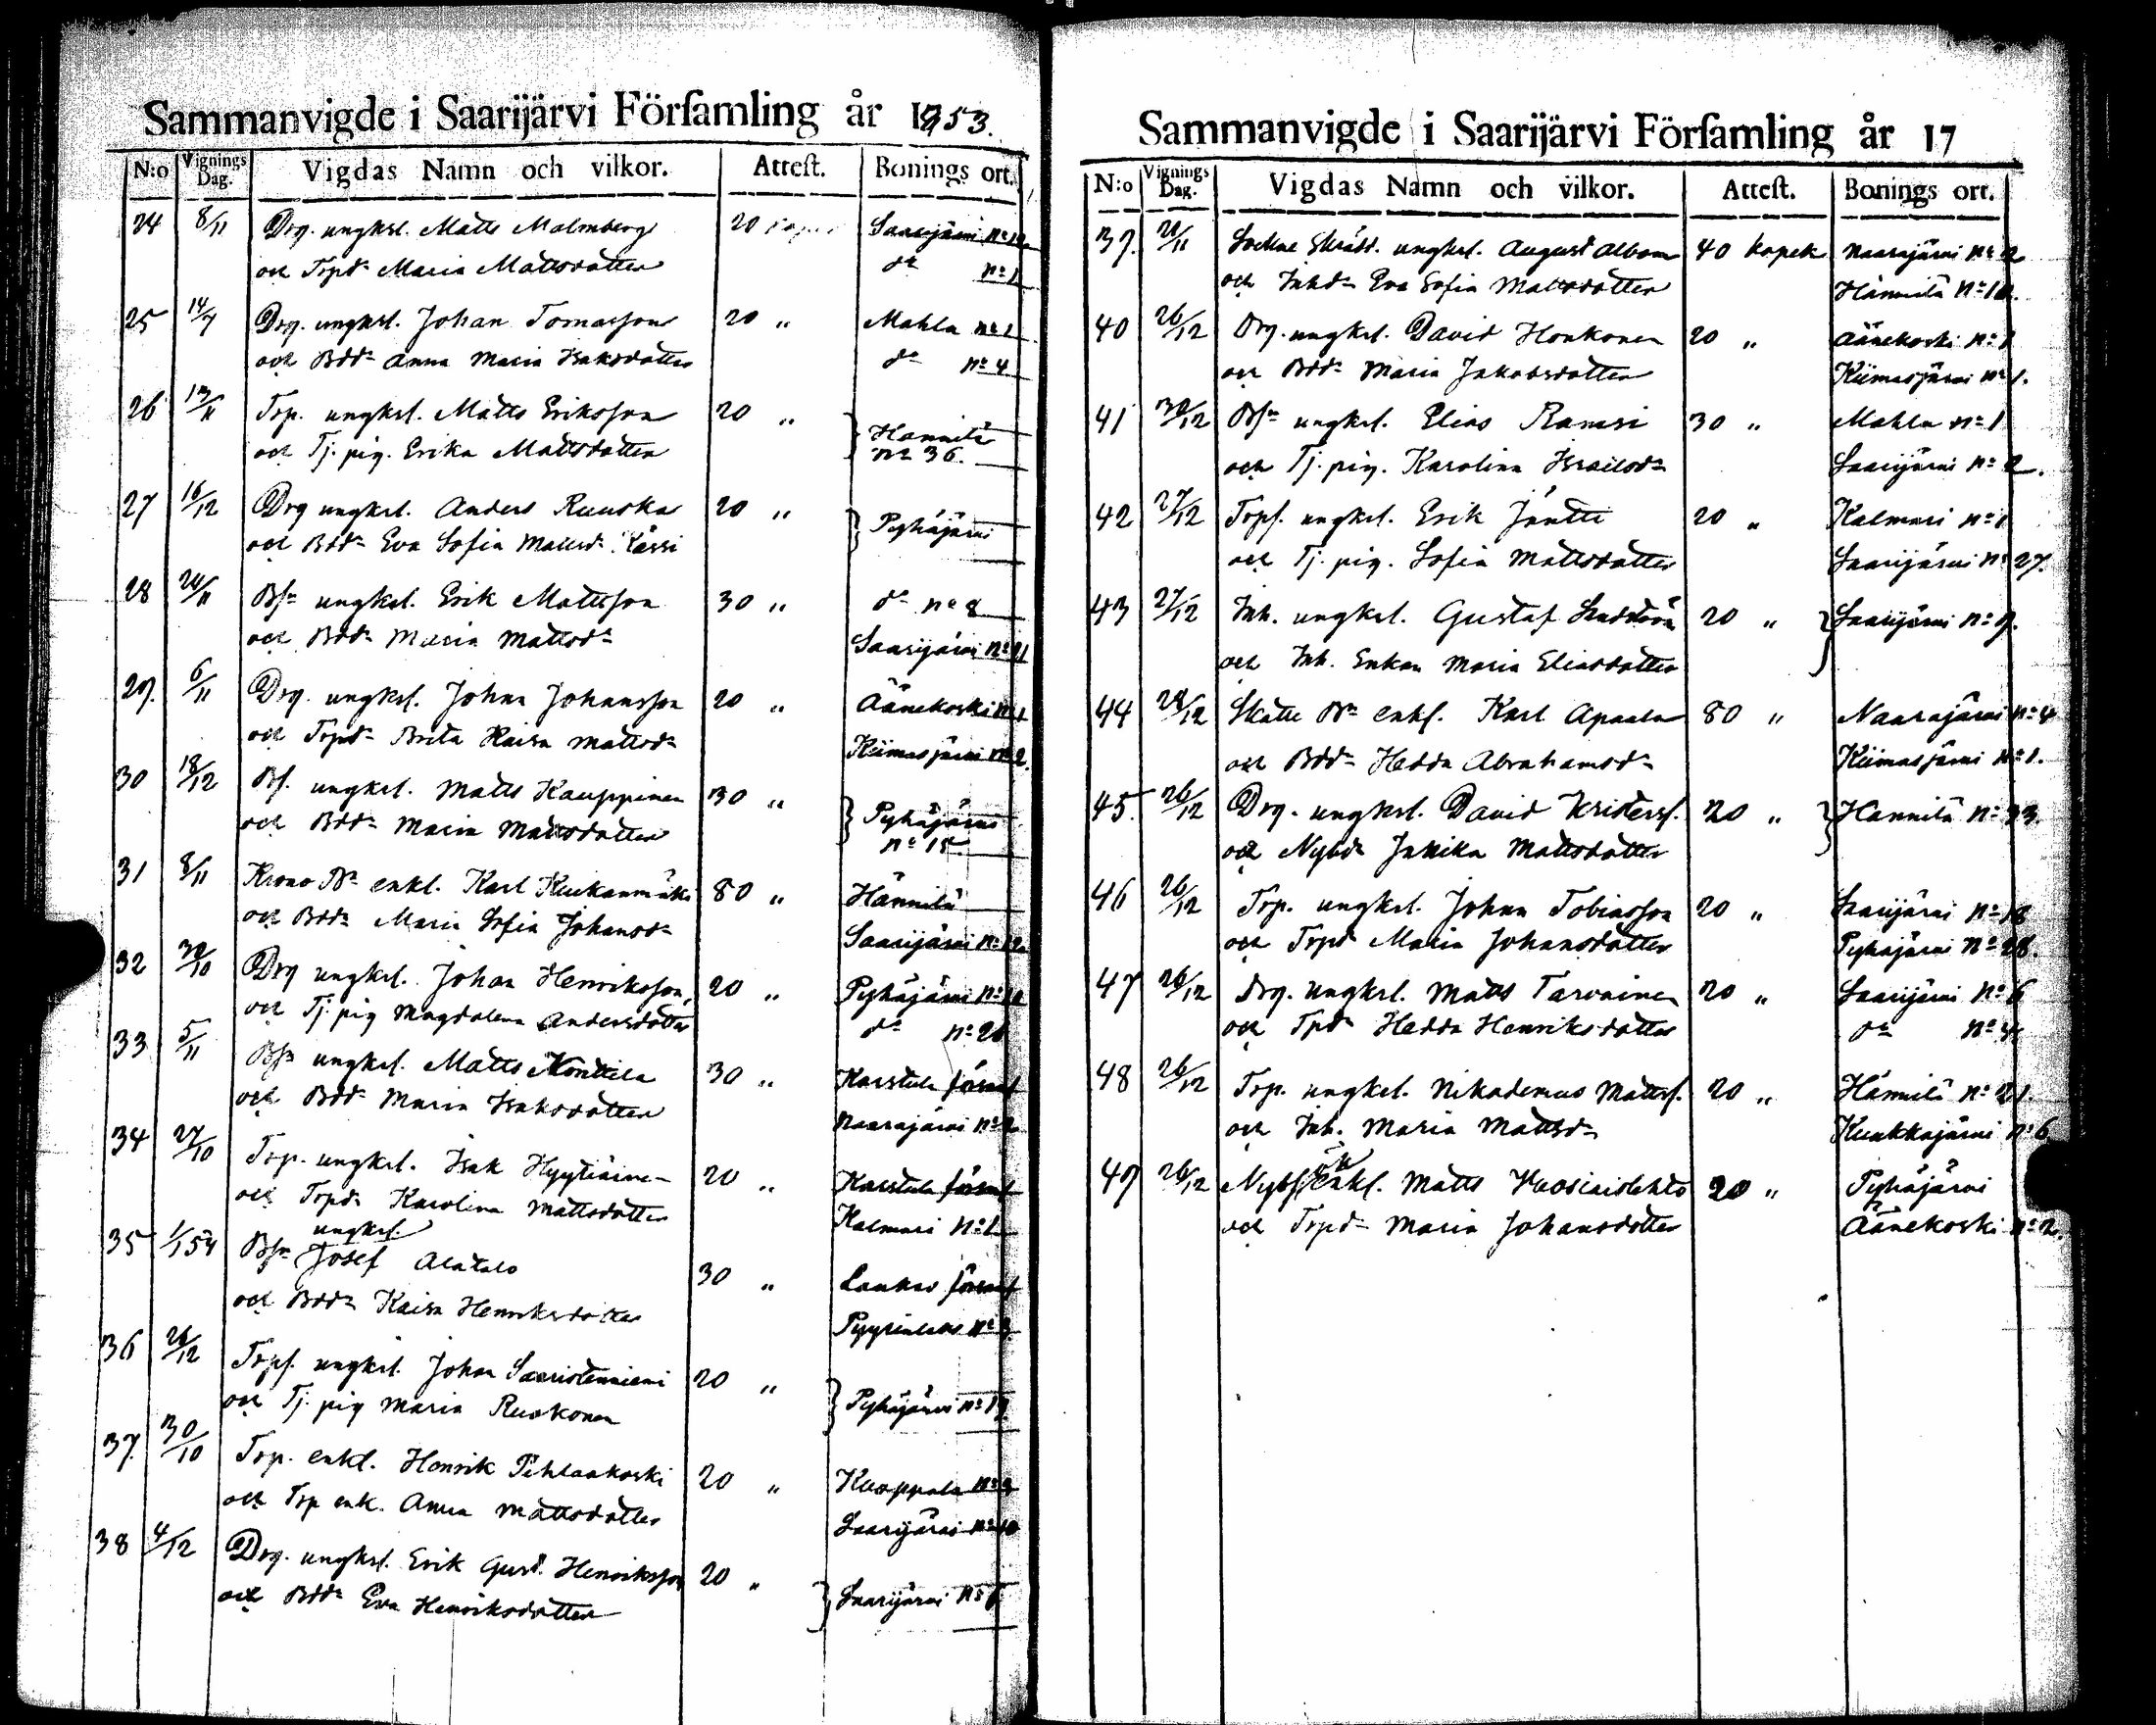 Sammanvigde i Saarijärvi Förſamling år 1853.
N:o Vignings Dag. Vigdas Namn och vilkor. Atteſt. Bonings ort.
24 8/11 Drg. ungkrl. Matts Malmberg 20 Saarijärvi
och Torpd:r Maria Mattsdotter d:o n:o 1
25 14/ Drg. ungkrl. Johan Tomasson 20 " Mahlu n:o 1
och Bdd:r Anna Maria Isaksdotter d:o n:o 4
26 13/11 Torp. ungkrl. Matts Eriksson 20 " Hännilä
och Tj. pig. Erika Mattsdotter n:o 36.
27 16/12 Drg ungkrl. Anders Ruuska 20 " Pyhäjärvi
och Bdd:r Eva Sofia Mattsd:r Kässi
28 20/11 Bs:n ungkrl. Erik Mattsson 30 " d:o n:o 8
och Bdd:r Maria Mattsd:r Saarijärvi n:o 11
29. 6/11 Drg. ungkrl. Johan Johansson 20 " Äänekoski n:o 1
och Torpd:r Brita Kaisa Mattsd:r Kiimasjärvi n:o 2.
30 18/12 Bs. ungkrl. Matts Kauppinen 30 " Pyhäjärvi
och Bdd:r Maria Mattsdotter n:o 15
31 8/11 Krono B:n enkl. Karl Kiukanmäki 80 " Hännilä
och Bdd:r Maria Sofia Johansd:r Saarijärvi n:o 12
32 30/10 Drg ungkrl. Johan Henriksson, 20 " Pyhäjärvi
och Tj. pig Magdalena Andersdotter d:o n:o 20
33 5/11 Bs:n ungkrl. Matts Konttila 30 " Karstula förs
och Bdd:r Maria Isaksdotter Naarajärvi n:o 2
34 27/10 Torp. ungkrl. Isak Hyytiäine- 20 " Karstula förs
och Torpd:r Karolina Mattsdotter Kalmari n:o 1
ungkrl.
35 1/1 54 Bs:n Josef Alatalo 30 " Laukas förs
och Bdd:r Kaisa Henriksdotter n:o 3
36 26/12 Torps. ungkrl. Johan Saaristenniemi 20 " Pyhäjärvi n:o 19.
och Tj. pig Maria Ruokonen
37. 30/10 Torp. enkl. Henrik Pihlaakoski 20 " Kuoppala
och Torp enk. Anna Mattsdotter Saarijärvi n:o 10
38 4/12 Drg. ungkrl. Erik Gust. Henriksson 20 " Saarijärvi n:o 6
och Bdd:r Eva Henriksdotter
Sammanvigde i Saarijärvi Förſamling år 17
N:o Vignings Dag. Vigdas Namn och vilkor. Atteſt. Bonings ort.
39. 21/11 Sockne Skräd. ungkrl. August Albom 40 kopek Naarajärvi n:o 12
och Inhd:r Eva Sofia Mattsdotter Hännilä n:o 10.
40 26/12 Drg. ungkrl. David Honkonen 20 " Äänekoski n:o 1
och Bdd:r Maria Jakobsdotter Kiimasjärvi n:o 1.
41 30/12 Bs:n ungkrl. Elias Ramsi 30 " Mahlu n:o 1
och Tj. pig. Karolina Israelsd:r Saarijärvi n:o 2.
42 27/12 Torps. ungkrl. Erik Jäntti 20 " Kalmari n:o 1
och Tj. pig. Sofia Mattsdotter Saarijärvi n:o 27.
43 27/12 Inh. ungkrl. Gustaf 20 " Saarijärvi n:o 9.
och Inh. Enkan Maria Eliasdotter
44 28/12 Skatte B:n enkl. Karl Apaala 80 " Naarajärvi n:o 4
och Bdd:r Hedda Abrahamsd:r Kiimasjärvi n:o 1.
45. 26/12 Drg. ungkrl. David Kristers. 20 " Hännilä n:o 33.
och Nybd:r Jullika Mattsdotter
46 26/12 Torp. ungkrl. Johan Tobiasson 20 " Saarijärvi n:o 18
och Torpd:r Maria Johansdotter Pyhäjärvi n:o 28.
47 26/12 Drg. ungkrl. Matts Tarvainen 20 " Saarijärvi n:o 6
och Tpd:r Hedda Henriksdotter d:o n:o 4
48 26/12 Torp. ungkrl. Nikademus Mattss. 20 " Hännilä n:o 21.
och Inh. Maria Mattsd:r Kuukkajärvi n:o 6
49 26/12 Nybs. enkl. Matts Vuosiaislehto 20 " Pyhäjärvi
och Torpd:r Maria Johansdotter Äänekoski n:o 2.